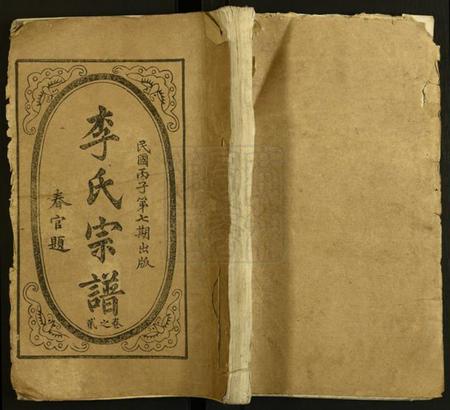 民國丙子第七期出版
李氏宗譜
卷之貳
春官題